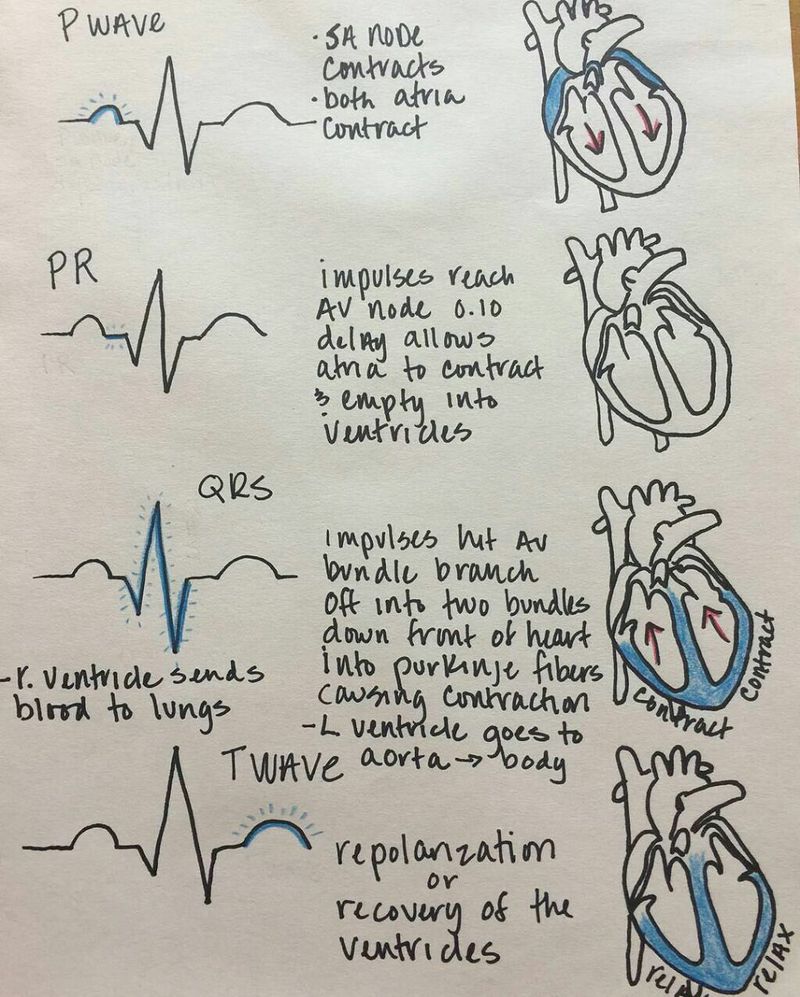 P WAVE
· SA NODE
Contracts
· both atria
Contract
PR
impulses reach
AV node 0.10
delay allows
atria to contract
& empty into
ventricles
QRS
impulses hit AV
bundle branch
off into two bundles
down front of heart
into purkinje fibers
causing contraction
- L ventricle goes to
aorta → body
- r. ventricle sends
blood to lungs
contract
contract
T WAVE
repolarization
or
recovery of the
ventricles
relax